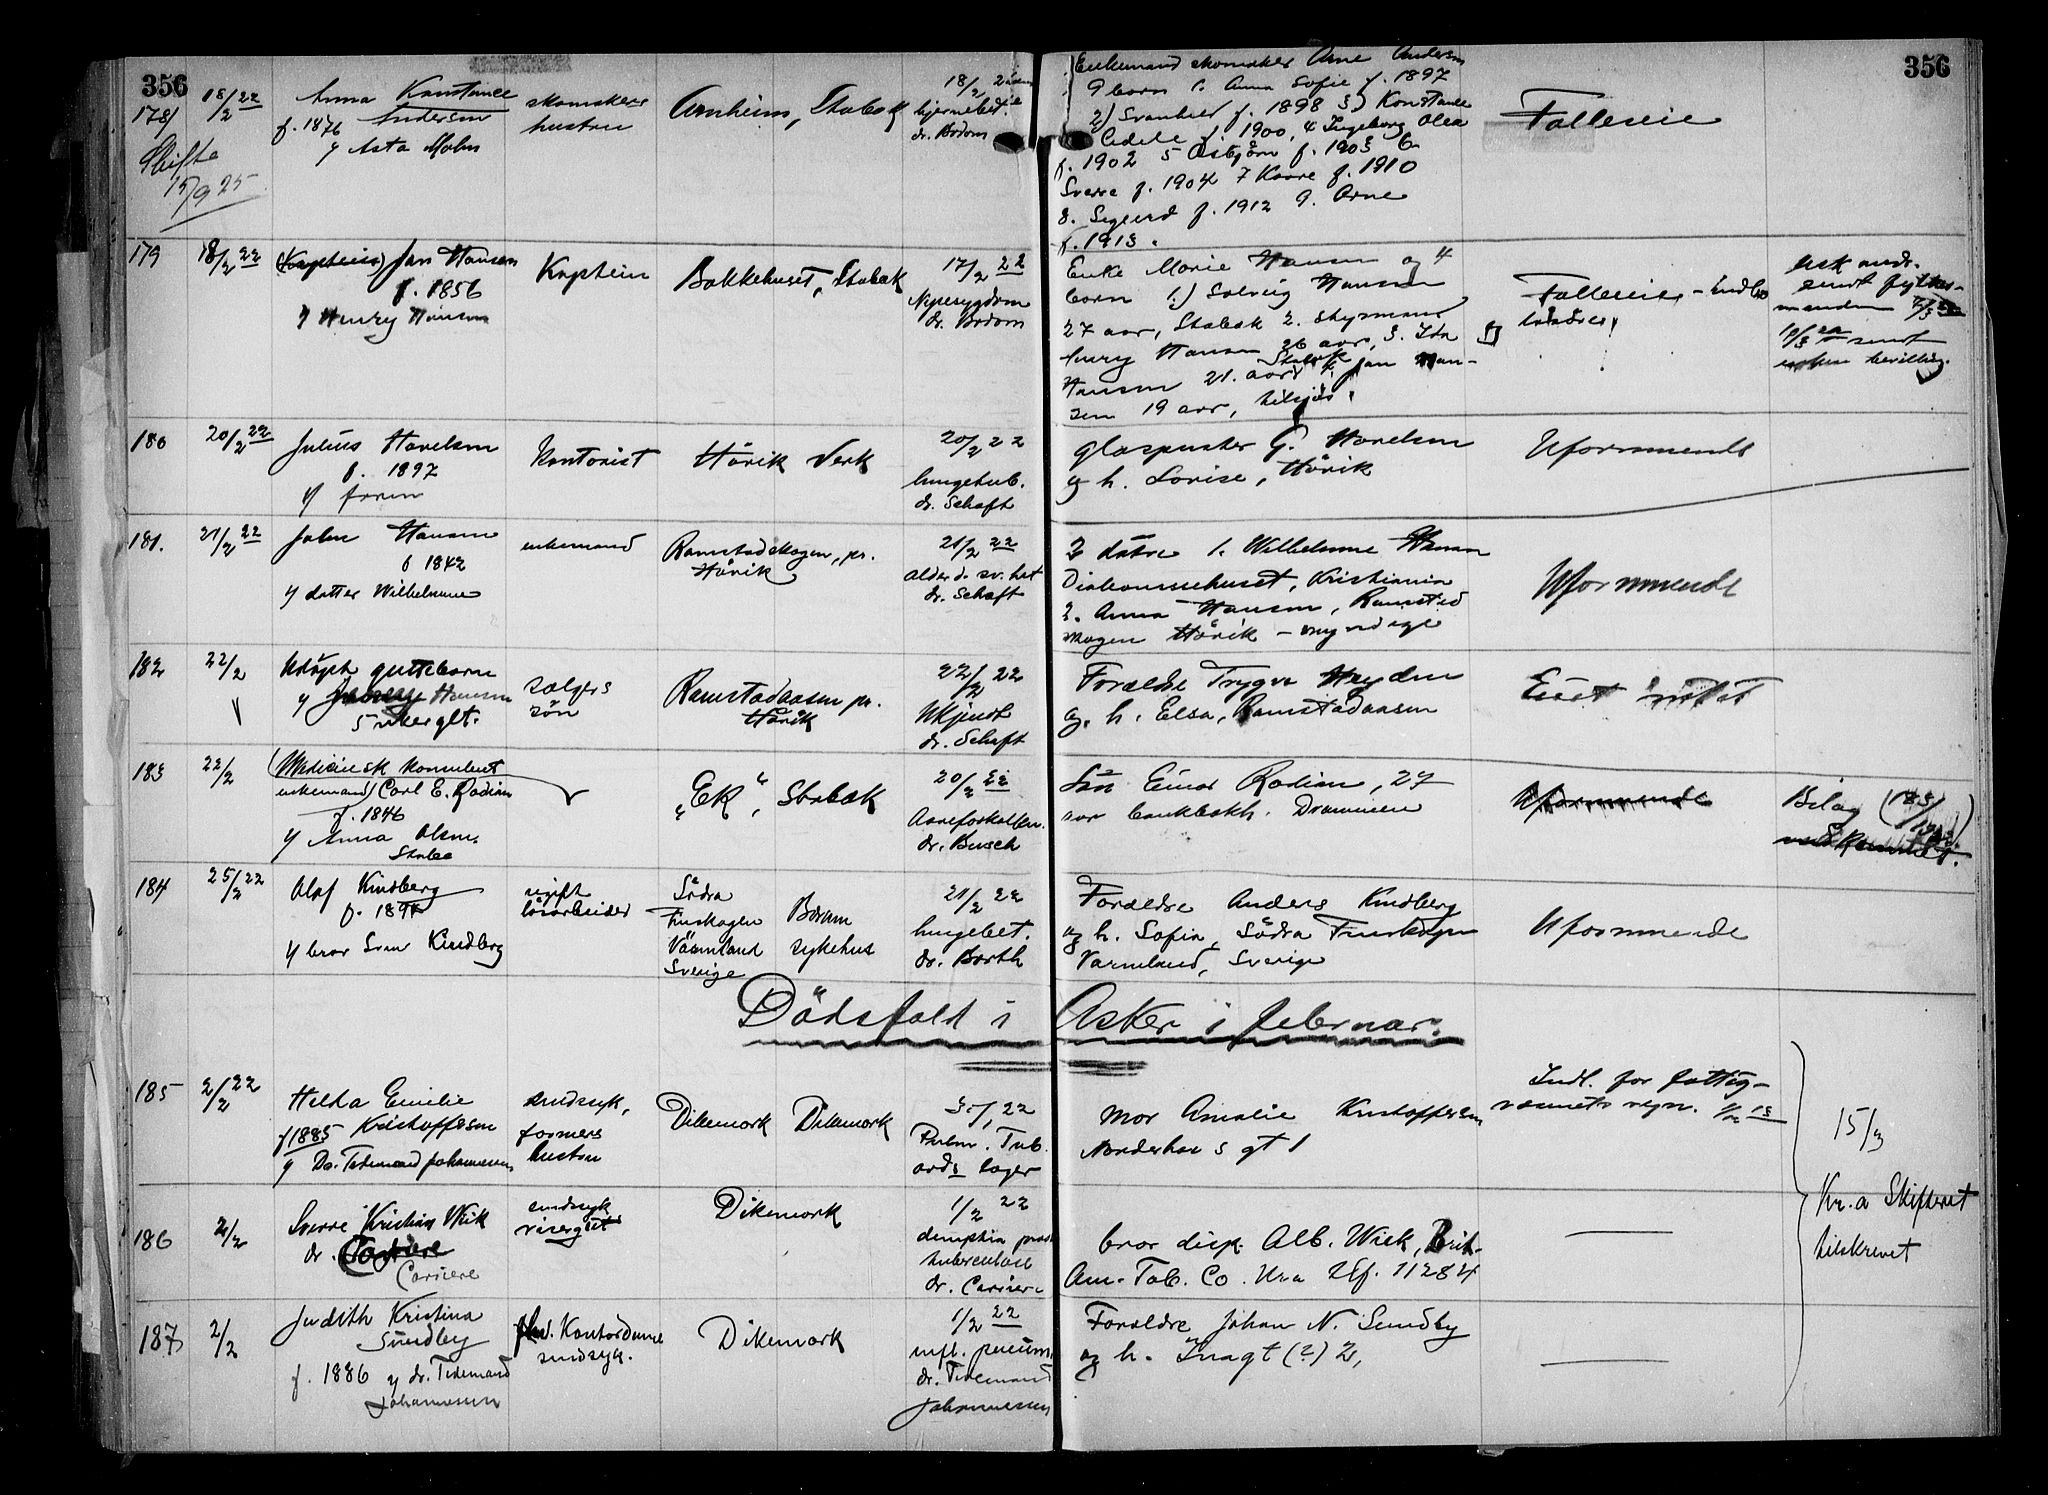 356
356
178/
18/2 22
Anna Konstance
Andersen
f. 1876
y Asta Molm
Skifte
15/9 25
skomakers
hustru
Arnheim, Stabæk
18/2 22
dr. Bodom
Enkemand skomaker Arne Andersen
9 børn 1. Anna Sofie f. 1897
2) Svanhild f. 1898 3) Konstance
f. 1900, 4 Ingeborg Olea
f. 1902 5 Asbjörn f. 1903 6
Sverre f. 1904 7 Kaare f. 1910
8. Sigurd f. 1912 9. Arne
f. 1913.
Fælleseie
179
18/2 22
(Kaptein) Jan Hansen
f. 1856
y Henry Hansen
Kaptein
Bakkehuset, Stabæk
17/2 22
Nyresygdom
dr. Bodom
Enke Marie Hansen og 4
børn 1.) Solveig Hansen
27 aar, Stabæk 2. styrmand
Henry Hansen 26 aar, 3.
Hansen 21. aar Stabæk 4. Jan Han-
sen 19 aar, tilsjøs.
Fælleseie
sendt fylkes-
manden
10/3 22 sendt
enken bevilling.
180
20/2 22
Julius Havelsen
f. 1897
y faren
Kontorist
Hövik Verk
20/2 22
lungetub.
dr. Schaft
glaspuster G. Havelsen
og h. Lovise, Hövik
Uformuende
181.
21/2 22
John Hansen
f 1842
y datter Wilhelmine
enkemand
Ramstadskogen, pr.
Hövik
21/2 22
alderd. sv.het
dr. Schaft
2 døtre 1. Wilhelmine Hansen
Diakonissehuset, Kristiania
2. Anna Hansen, Ramstad
skogen Hövik - myndige
Uformuende
182
22/2
Udöpt guttebarn
y Hansen
5 uker glt.
sælgers
sön
Ramstadaasen pr.
Hövik
22/2 22
Ukjendt
dr. Schaft
Forældre Trygve Heyden
og h. Elsa, Ramstadaasen
183
22/2
(Medicinsk konsulent
enkemand) Carl E. Rodian
f. 1846
y Anna Olsen,
Stabæk
"EK", Stabæk
20/2 22
Aareforkalkn.
dr. Busch
Sön Einar Rodian, 27
aar bankbokh. Drammen
Uformuende
Bilag (183/
184
25/2 22
Olaf Kindberg
y bror Sven Kindberg
ugift
løsarbeider
Södra
Finskogen
Värmland
Sverige
Bærum
sykehus
21/2 22
lungebet.
dr. Barth
Forældre Anders Kindberg
og h. Sofia, Södra Finskogen
Varmland, Sverige
Uformuende
Dödsfald i Asker i februar.
185
2/2 22
Hilda Emilie
f 1885 Kristoffersen
y Dr. Tidemand Johannessen
sindssyk,
formers
hustru
Dikemark Dikemark
31/1 22
Pulm. Tub.
Mor Amalie Kristoffersen
Norderhovs gt 1
Indl. for fattig-
væsnets regn.
15/3
Kr.a Skifteret
tilskrevet
186
2/2
Sverre Kristian Wiik
dr. Carriere
Carriere
sindssyk
visergut
Dikemark
1/2 22
tuberculose
dr. Carriere
bror disp. Alb. Wiik, Brit-
Am-Tob. Co. Kra Tlf. 11284
187
2/2
Judith Kristina
Sundby
f. 1886 y dr. Tidemand
Johannessen
Kontordame
sindsyk.
Dikemark
1/2 22
infl. pneum.
dr. Tidemand
Johannessen
Forældre Johan N. Sundby
og h. Inagt (?) 2,